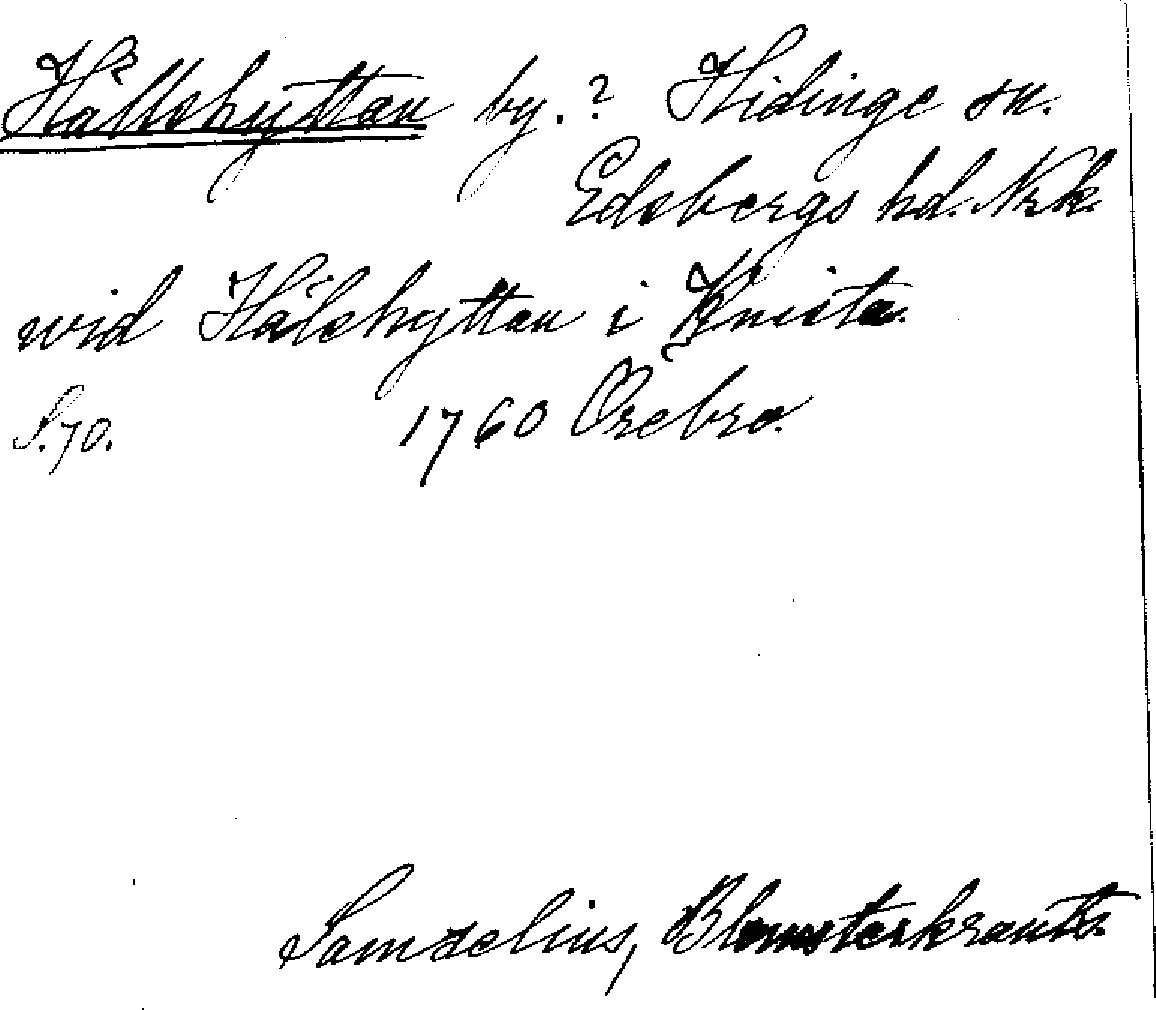 Hållshyttan by. ? Hidinge sn.
Edsbergs hd. Nrk.
wid Hålshyttan i Knista.
S. 70. 1760 Örebro.
Samzelius, Blomsterkrants.